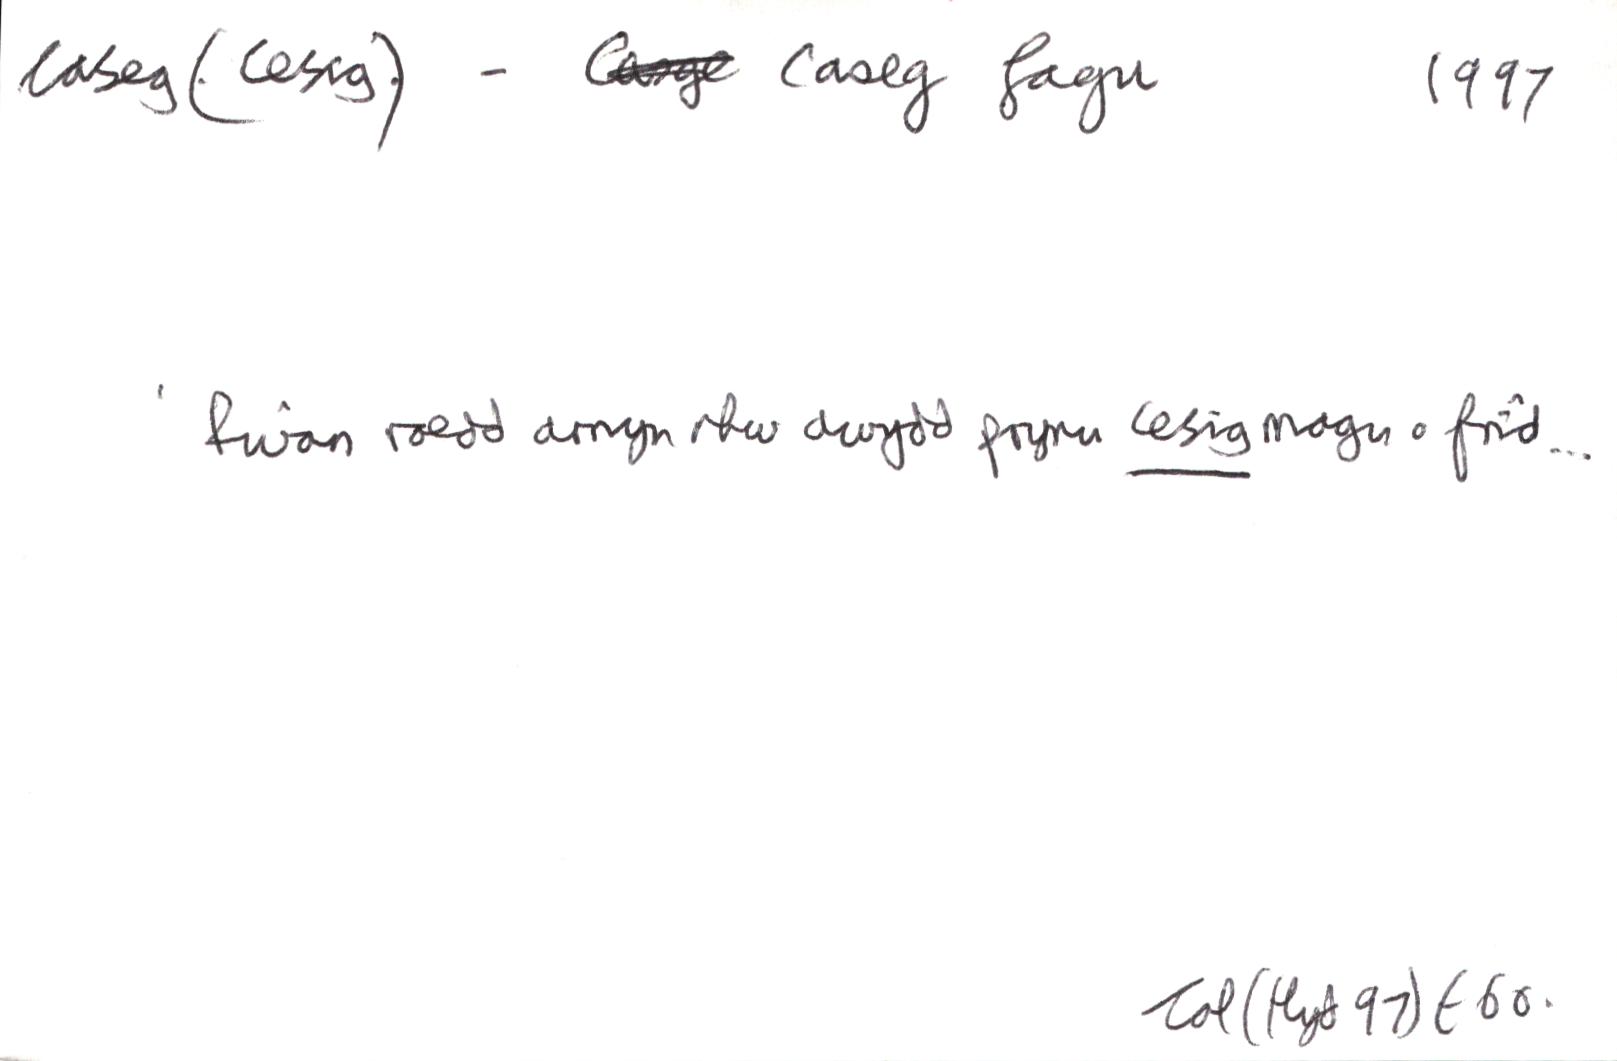 Caseg (Cesig) - Caseg fagu 1997
' Rwân roedd arnyn nhw awydd prynu cesig magu o frîd...
Col (Hyd 97) t 60.